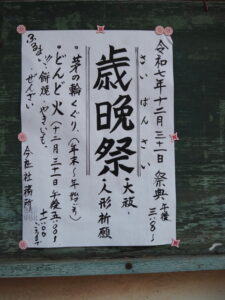 令和七年十二月三十一日 祭典 午後三:〇〇〜
さいばんさい
歳晩祭
大祓・人形祈願
・茅の輪くぐり、(年末〜年始)
・どんど火(十二月三十一日午後五:〇〇
ふるまい!! 餅・やきいも、
ぜんざい
社務所